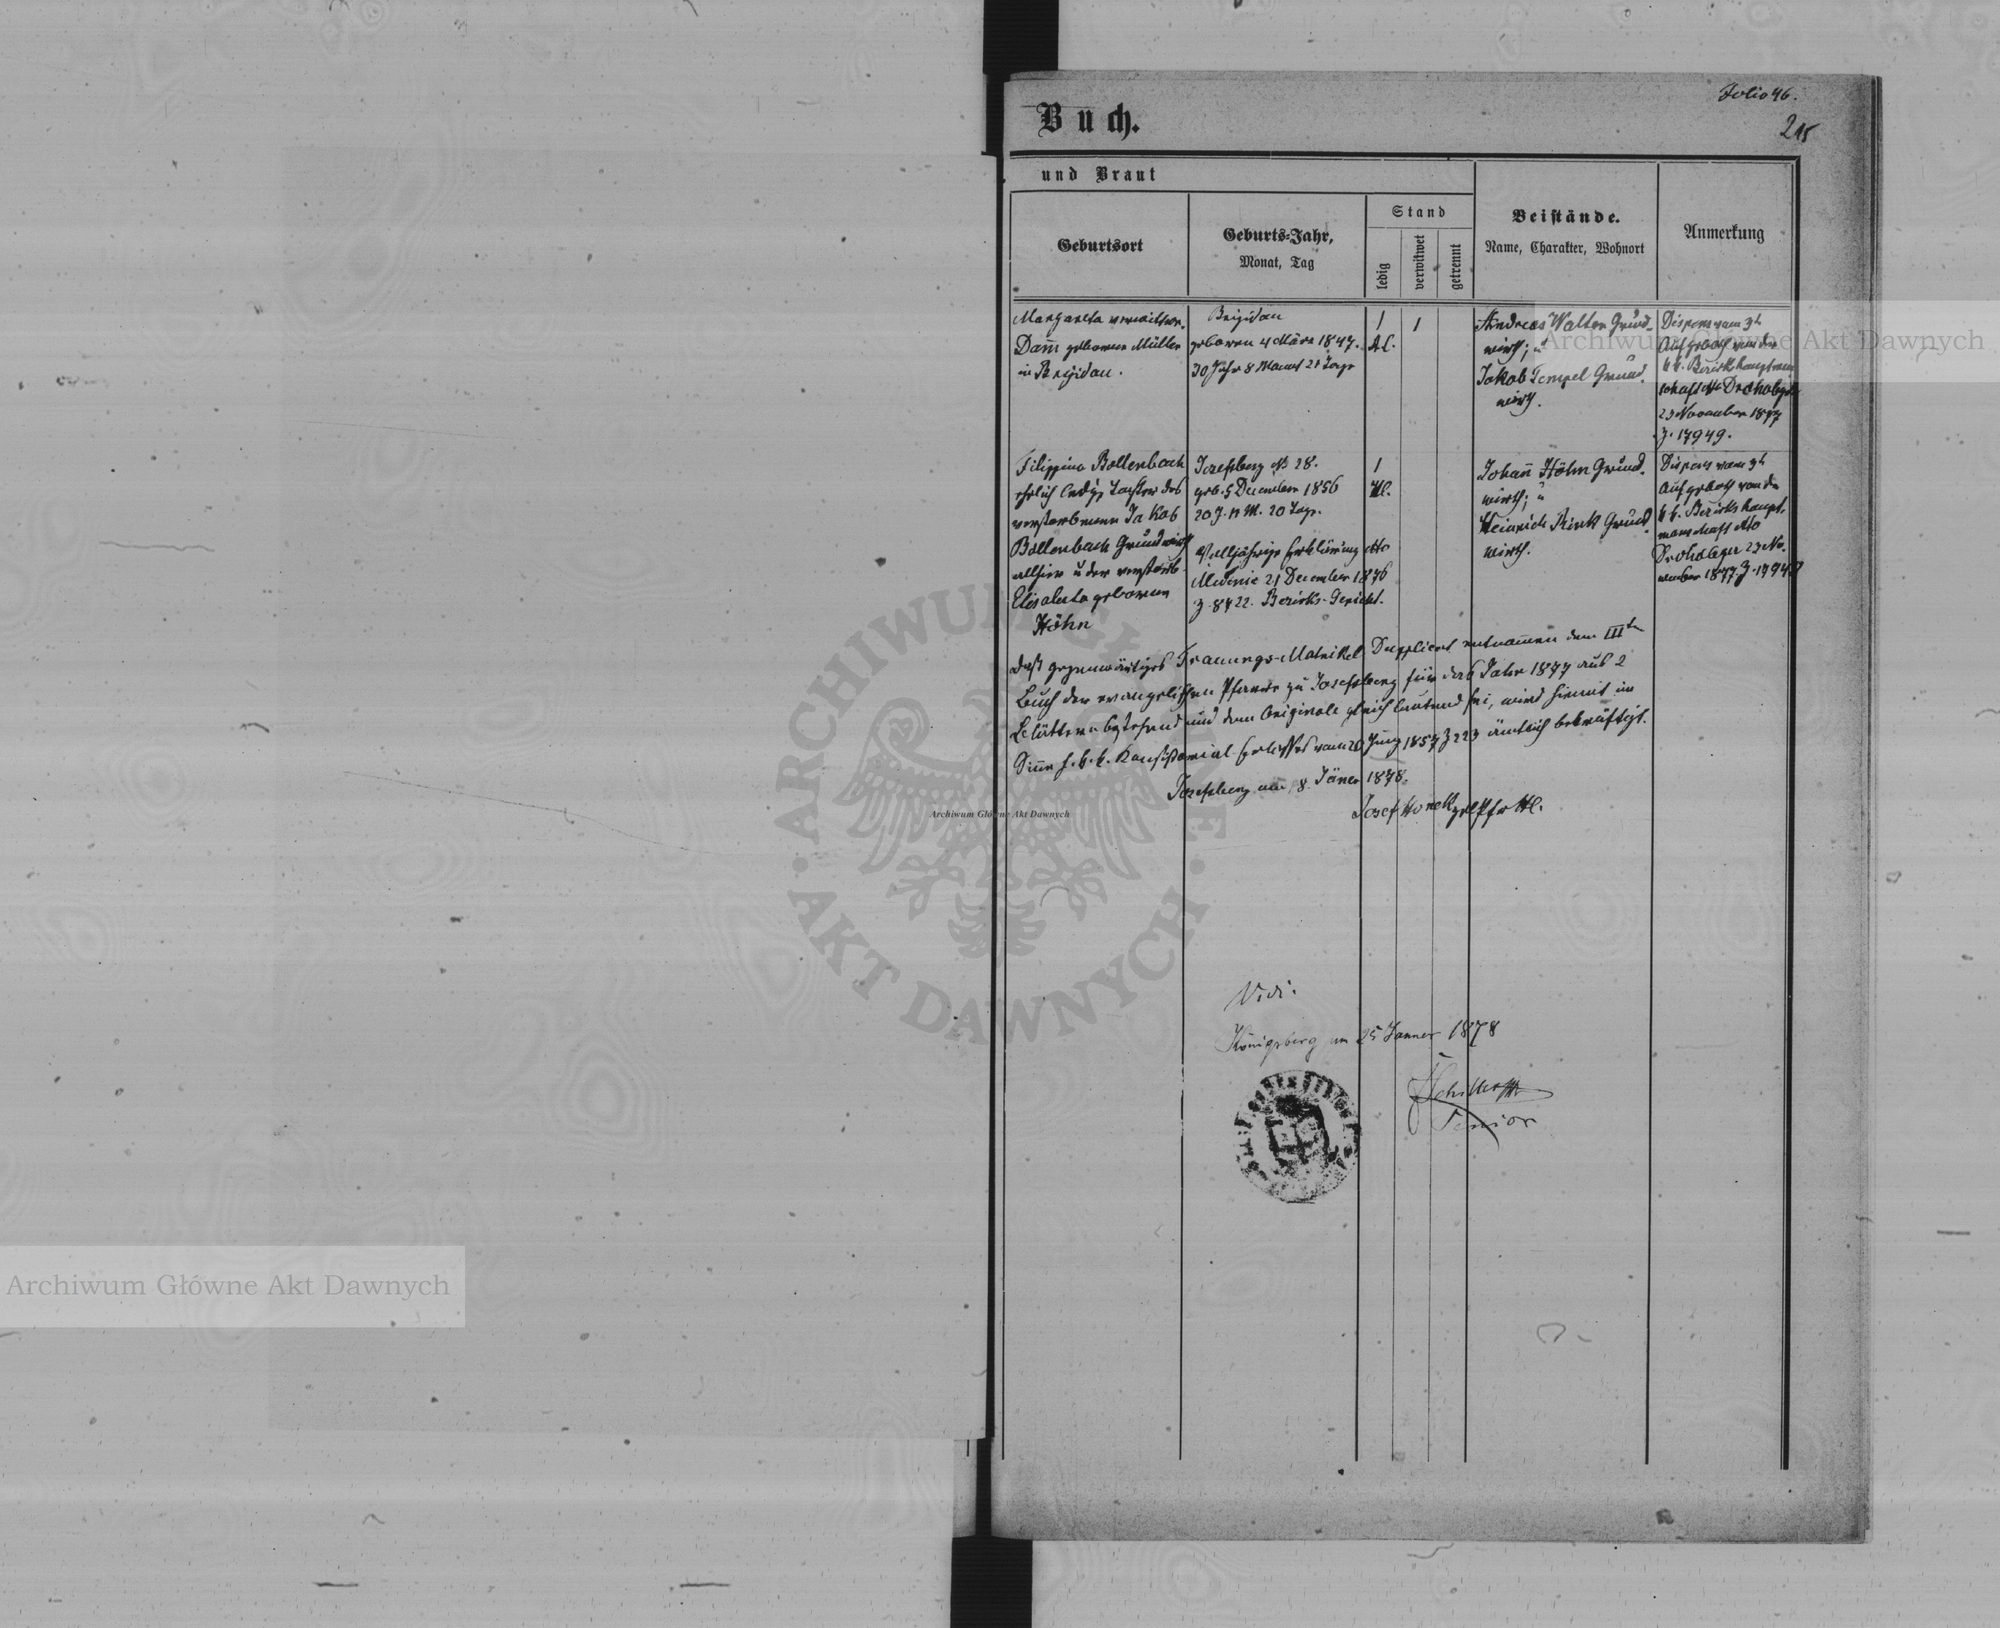 Folio 46.
215
Buch.
und Braut
Geburtsort
Geburts-Jahr,
Monat, Tag
Stand
ledig
verwitwet
getrennt
Beistände.
Name, Charakter, Wohnort
Anmerkung
Margareta verwittwe.
Dam̅ geborene Müller
in Brigidau.
Brigidau
geboren 4 März 1847.
30 Jahr 8 Monat 21 Tage
1
1
A.C.
Andreas Walter Grund-
wirth; u
Jakob Tempel Grund-
wirth.
Dispens vom 3t
Aufgeboth von der
k k. Bezirkshauptman
schaft dto Drohobycz
23 November 1877
Z. 17949.
Filippina Bollenbach
ehrlich ledige Tochter des
verstorbenen Jakob
Bollenbach Grundwirth
allhier u der verstorb.
Elisabeta geborenen
Höhn
Josefsberg No 28.
geb. 5 December 1856
20 J. 11 M. 20 Tage.
Volljährige Erklärung dto
Medenic 21 December 1876
Z. 8422. Bezirks-Gericht.
1
H.C.
Johan̅ Höhn Grund-
wirth; u
Heinrich Rink Grund
wirth.
Dispens vom 3t
Aufgeboth von der
k k. Bezirkshaupt-
manschaft dto
Drohobycz 23 No-
vember 1877 Z. 1794
Daß gegenwärtiges Trauungs-Matrikel Duplicat entnom̅en dem IIIten
Buch der evangelischen Pfarre zu Josefsberg für das Jahr 1877 aus 2
Blättern bestehend und dem Originale gleichlautend sei, wird hiemit im
Sinne h. k. k. Konsistorial-Erlasses vom 20 Juny 1857 Z 223 ämtlich bekräftigt.
Josefsberg am 8. Jäner 1878.
Josef Honek
Vidi.
Königsberg am 25 Jänner 1878
Senior
ARCHIWUM GŁÓWNE
AKT DAWNYCH
Archiwum Główne Akt Dawnych
Archiwum Główne Akt Dawnych
Archiwum Główne Akt Dawnych